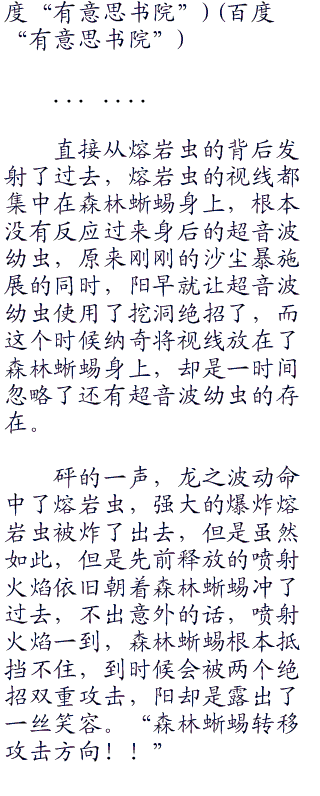 度“有意思书院”) (百度
“有意思书院”)
... ....
直接从熔岩虫的背后发
射了过去，熔岩虫的视线都
集中在森林蜥蜴身上，根本
没有反应过来身后的超音波
幼虫，原来刚刚的沙尘暴施
展的同时，阳早就让超音波
幼虫使用了挖洞绝招了，而
这个时候纳奇将视线放在了
森林蜥蜴身上，却是一时间
忽略了还有超音波幼虫的存
在。
砰的一声，龙之波动命
中了熔岩虫，强大的爆炸熔
岩虫被炸了出去，但是虽然
如此，但是先前释放的喷射
火焰依旧朝着森林蜥蜴冲了
过去，不出意外的话，喷射
火焰一到，森林蜥蜴根本抵
挡不住，到时候会被两个绝
招双重攻击，阳却是露出了
一丝笑容。“森林蜥蜴转移
攻击方向！！”